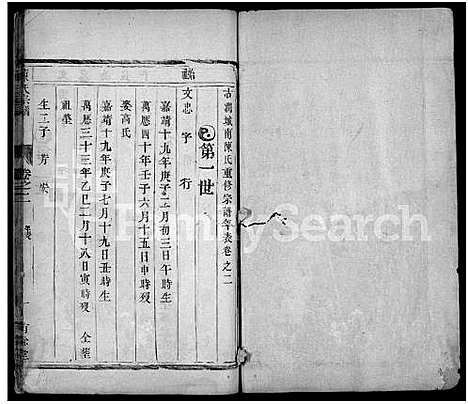 古潤城南陳氏重修宗譜年表卷之二
第一世
文忠 字 行
嘉靖十九年庚子二月初三日午時生
萬歷四十年壬子六月十五日申時殁
娶高氏
嘉靖十九年庚子七月十九日丑時生
萬歷三十三年乙巳二月十八日寅時殁 仝葬
祖塋
生二子
卷之二
FamilySearch